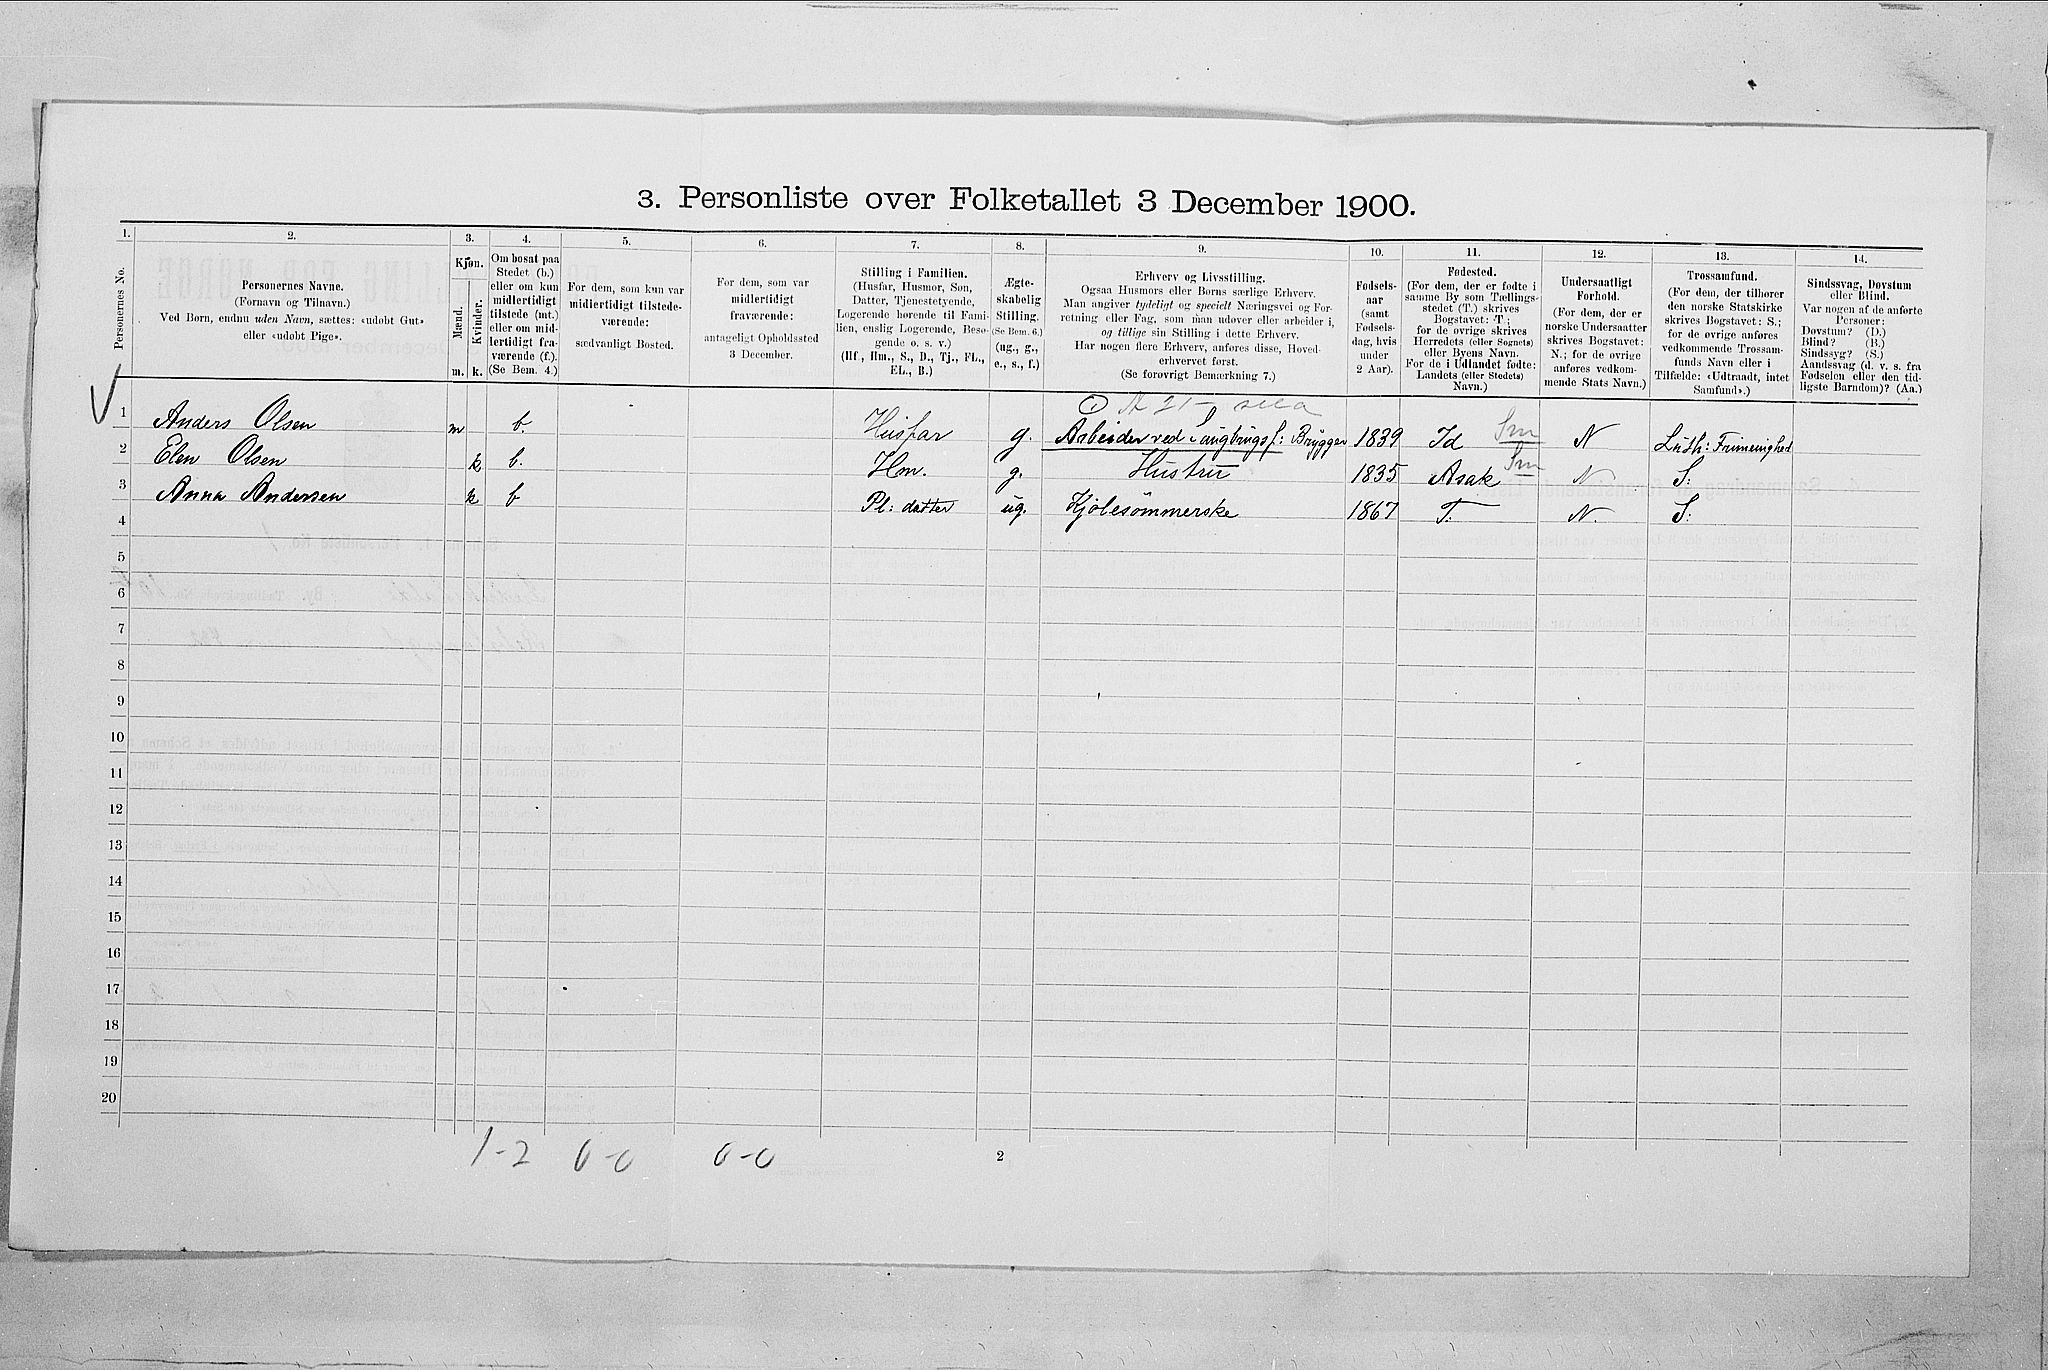 3. Personliste over Folketallet 3 December 1900.
1. 2. 3. 4. 5. 6. 7. 8. 9. 10. 11. 12. 13. 14.
Personernes No.
Personernes Navne.
(Fornavn og Tilnavn.)
Ved Børn, endnu uden Navn, sættes: «udøbt Gut»
eller «udøbt Pige».
Kjøn.
Mænd.
Kvinder.
m. k.
Om bosat paa
Stedet (b.)
eller om kun
midlertidigt
tilstede (mt.)
eller om mid-
lertidigt fra-
værende (f.).
(Se Bem. 4.)
For dem, som kun var
midlertidigt tilstede-
værende:
sædvanligt Bosted.
For dem, som var
midlertidigt
fraværende:
antageligt Opholdssted
3 December.
Stilling i Familien.
(Husfar, Husmor, Søn,
Datter, Tjenestetyende,
Logerende hørende til Fami-
lien, enslig Logerende, Besø-
gende o. s. v.)
(Hf., Hm., S., D., Tj., FL.,
EL., B.)
Ægte-
skabelig
Stilling.
(Se Bem. 6.)
(ug., g.,
e., s., f.)
Erhverv og Livsstilling.
Ogsaa Husmors eller Børns særlige Erhverv.
Man angiver tydeligt og specielt Næringsvei og For-
retning eller Fag, som man udøver eller arbeider i,
og tillige sin Stilling i dette Erhverv.
Har nogen flere Erhverv, anføres disse, Hoved-
erhvervet først.
(Se forøvrigt Bemærkning 7.)
Fødsels-
aar
(samt
Fødsels-
dag, hvis
under
2 Aar).
Fødested.
(For dem, der er fødte i
samme By som Tællings-
stedet (T.) skrives
Bogstavet: T;
for de øvrige skrives
Herredets (eller Sognets)
eller Byens Navn.
For de i Udlandet fødte:
Landets (eller Stedets)
Navn.)
Undersaatligt
Forhold.
(For dem, der er
norske Undersaatter
skrives Bogstavet:
N.; for de øvrige
anføres vedkom-
mende Stats Navn.)
Trossamfund.
(For dem, der tilhører
den norske Statskirke
skrives Bogstavet: S.;
for de øvrige anføres
vedkommende Trossam-
funds Navn eller i
Tilfælde: «Udtraadt, intet
Samfund».)
Sindssvag, Døvstum
eller Blind.
Var nogen af de anførte
Personer:
Døvstum? (D.)
Blind? (B.)
Sindssyg? (S.)
Aandssvag (d. v. s. fra
Fødselen eller den tid-
ligste Barndom)? (Aa.)
1 Anders Olsen m b. Husfar g. Arbeider ved Saugbrugsf: Brygger 1839 Id Sm N Luth: Frimenighed
2 Elen Olsen k b. Hm. g. Hustru 1835 Asak Sm N S:
3 Anna Andersen k b Pl: datter ug. Kjolesømmerske 1867 T. N. S:
4
5
6
7
8
9
10
11
12
13
14
15
16
17
18
19
20
1-2 0-0 0-0
2